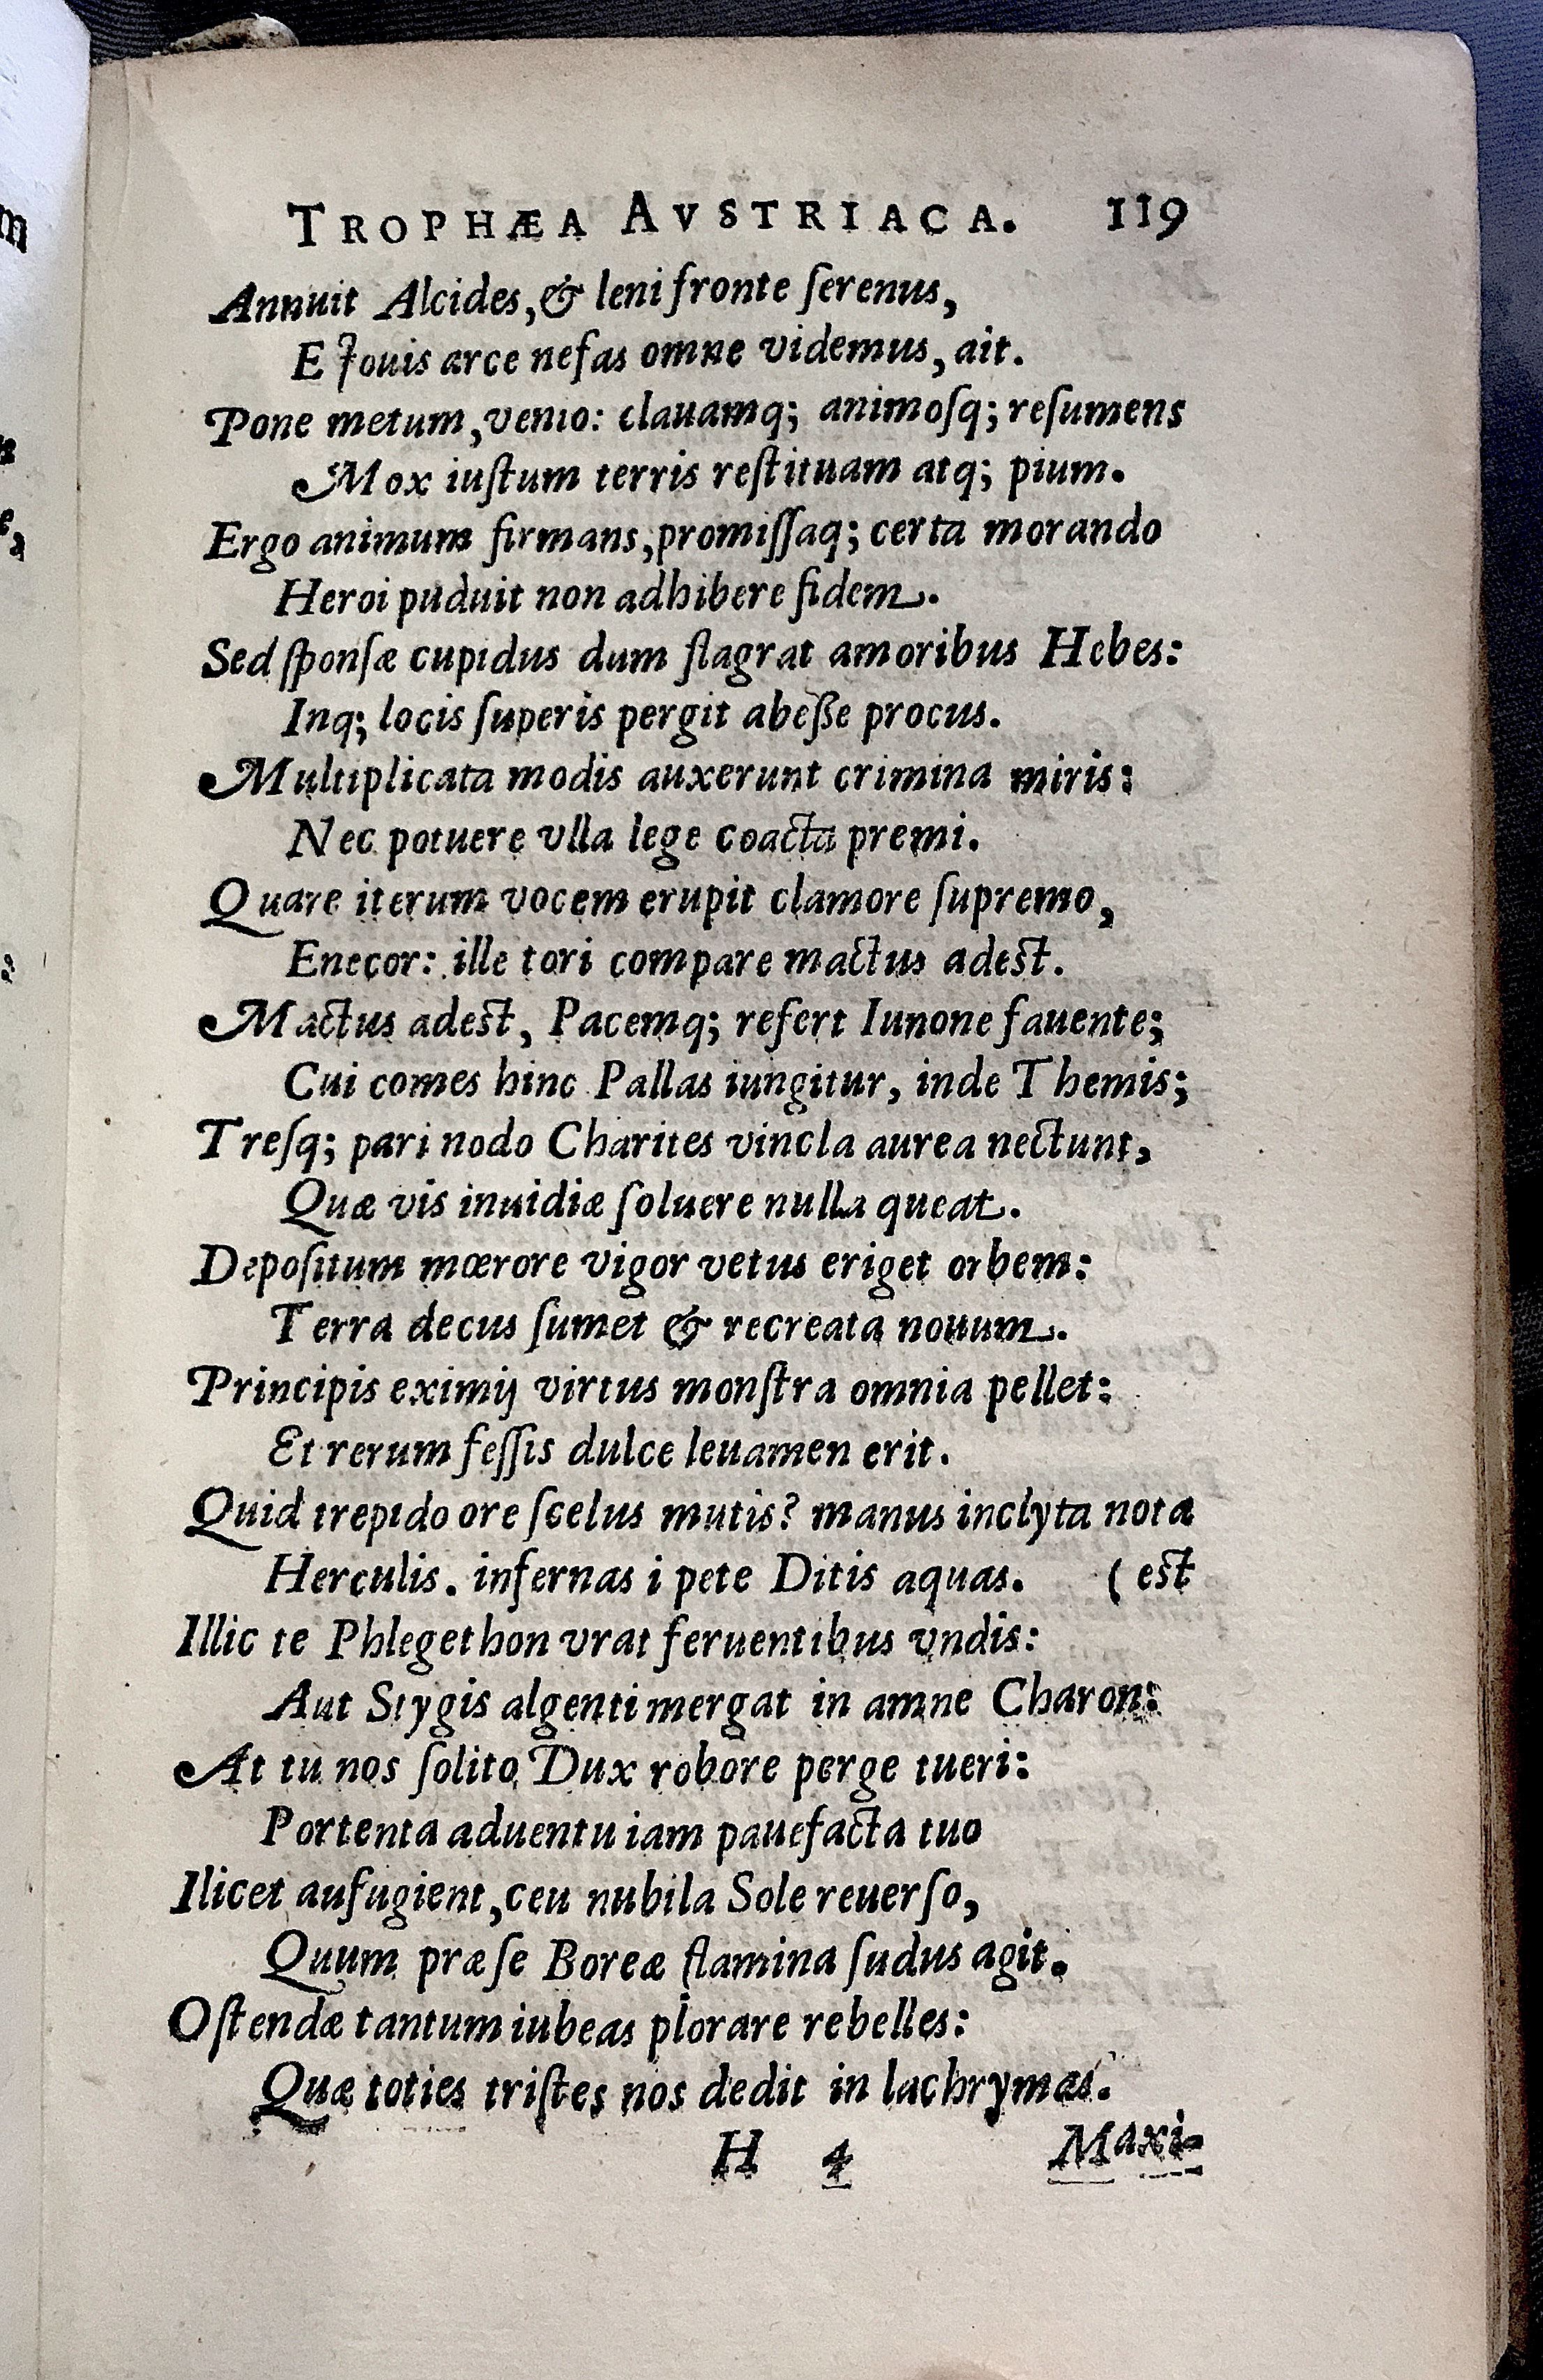 TROPHÆA AVSTRIACA. 119
Annuit Alcides, & leni fronte ſerenus,
E Jouis arce nefas omne videmus, ait.
Pone metum, venio: clauamq; animoſq; reſumens
Mox iuſtum terris reſtituam atq; pium.
Ergo animum firmans, promiſſaq; certa morando
Heroi puduit non adhibere fidem.
Sed ſponſæ cupidus dum flagrat amoribus Hebes:
Inq; locis ſuperis pergit abeße procus.
Multiplicata modis auxerunt crimina miris:
Nec potuere vlla lege coacta premi.
Quare iterum vocem erupit clamore ſupremo,
Enecor: ille tori compare mactus adest.
Mactus adest, Pacemq; refert Iunone fauente;
Cui comes hinc Pallas iungitur, inde Themis;
Treſq; pari nodo Charites vincla aurea nectunt,
Quæ vis inuidiæ ſoluere nulla queat.
Depoſitum mœrore vigor vetus eriget orbem:
Terra decus ſumet & recreata nouum.
Principis eximij virtus monſtra omnia pellet:
Et rerum feſſis dulce leuamen erit.
Quid trepido ore ſcelus mutis? manus inclyta nota
Herculis. infernas i pete Ditis aquas. (est
Illic te Phlegethon vrat feruentibus vndis:
Aut Stygis algenti mergat in amne Charon:
At tu nos ſolito Dux robore perge tueri:
Portenta aduentu iam pauefacta tuo
Ilicet aufugient, ceu nubila Sole reuerſo,
Quum præ ſe Boreæ flamina ſudus agit.
Oſtendæ tantum iubeas plorare rebelles:
Quæ toties triſtes nos dedit in lachrymas.
H 4 Maxi-